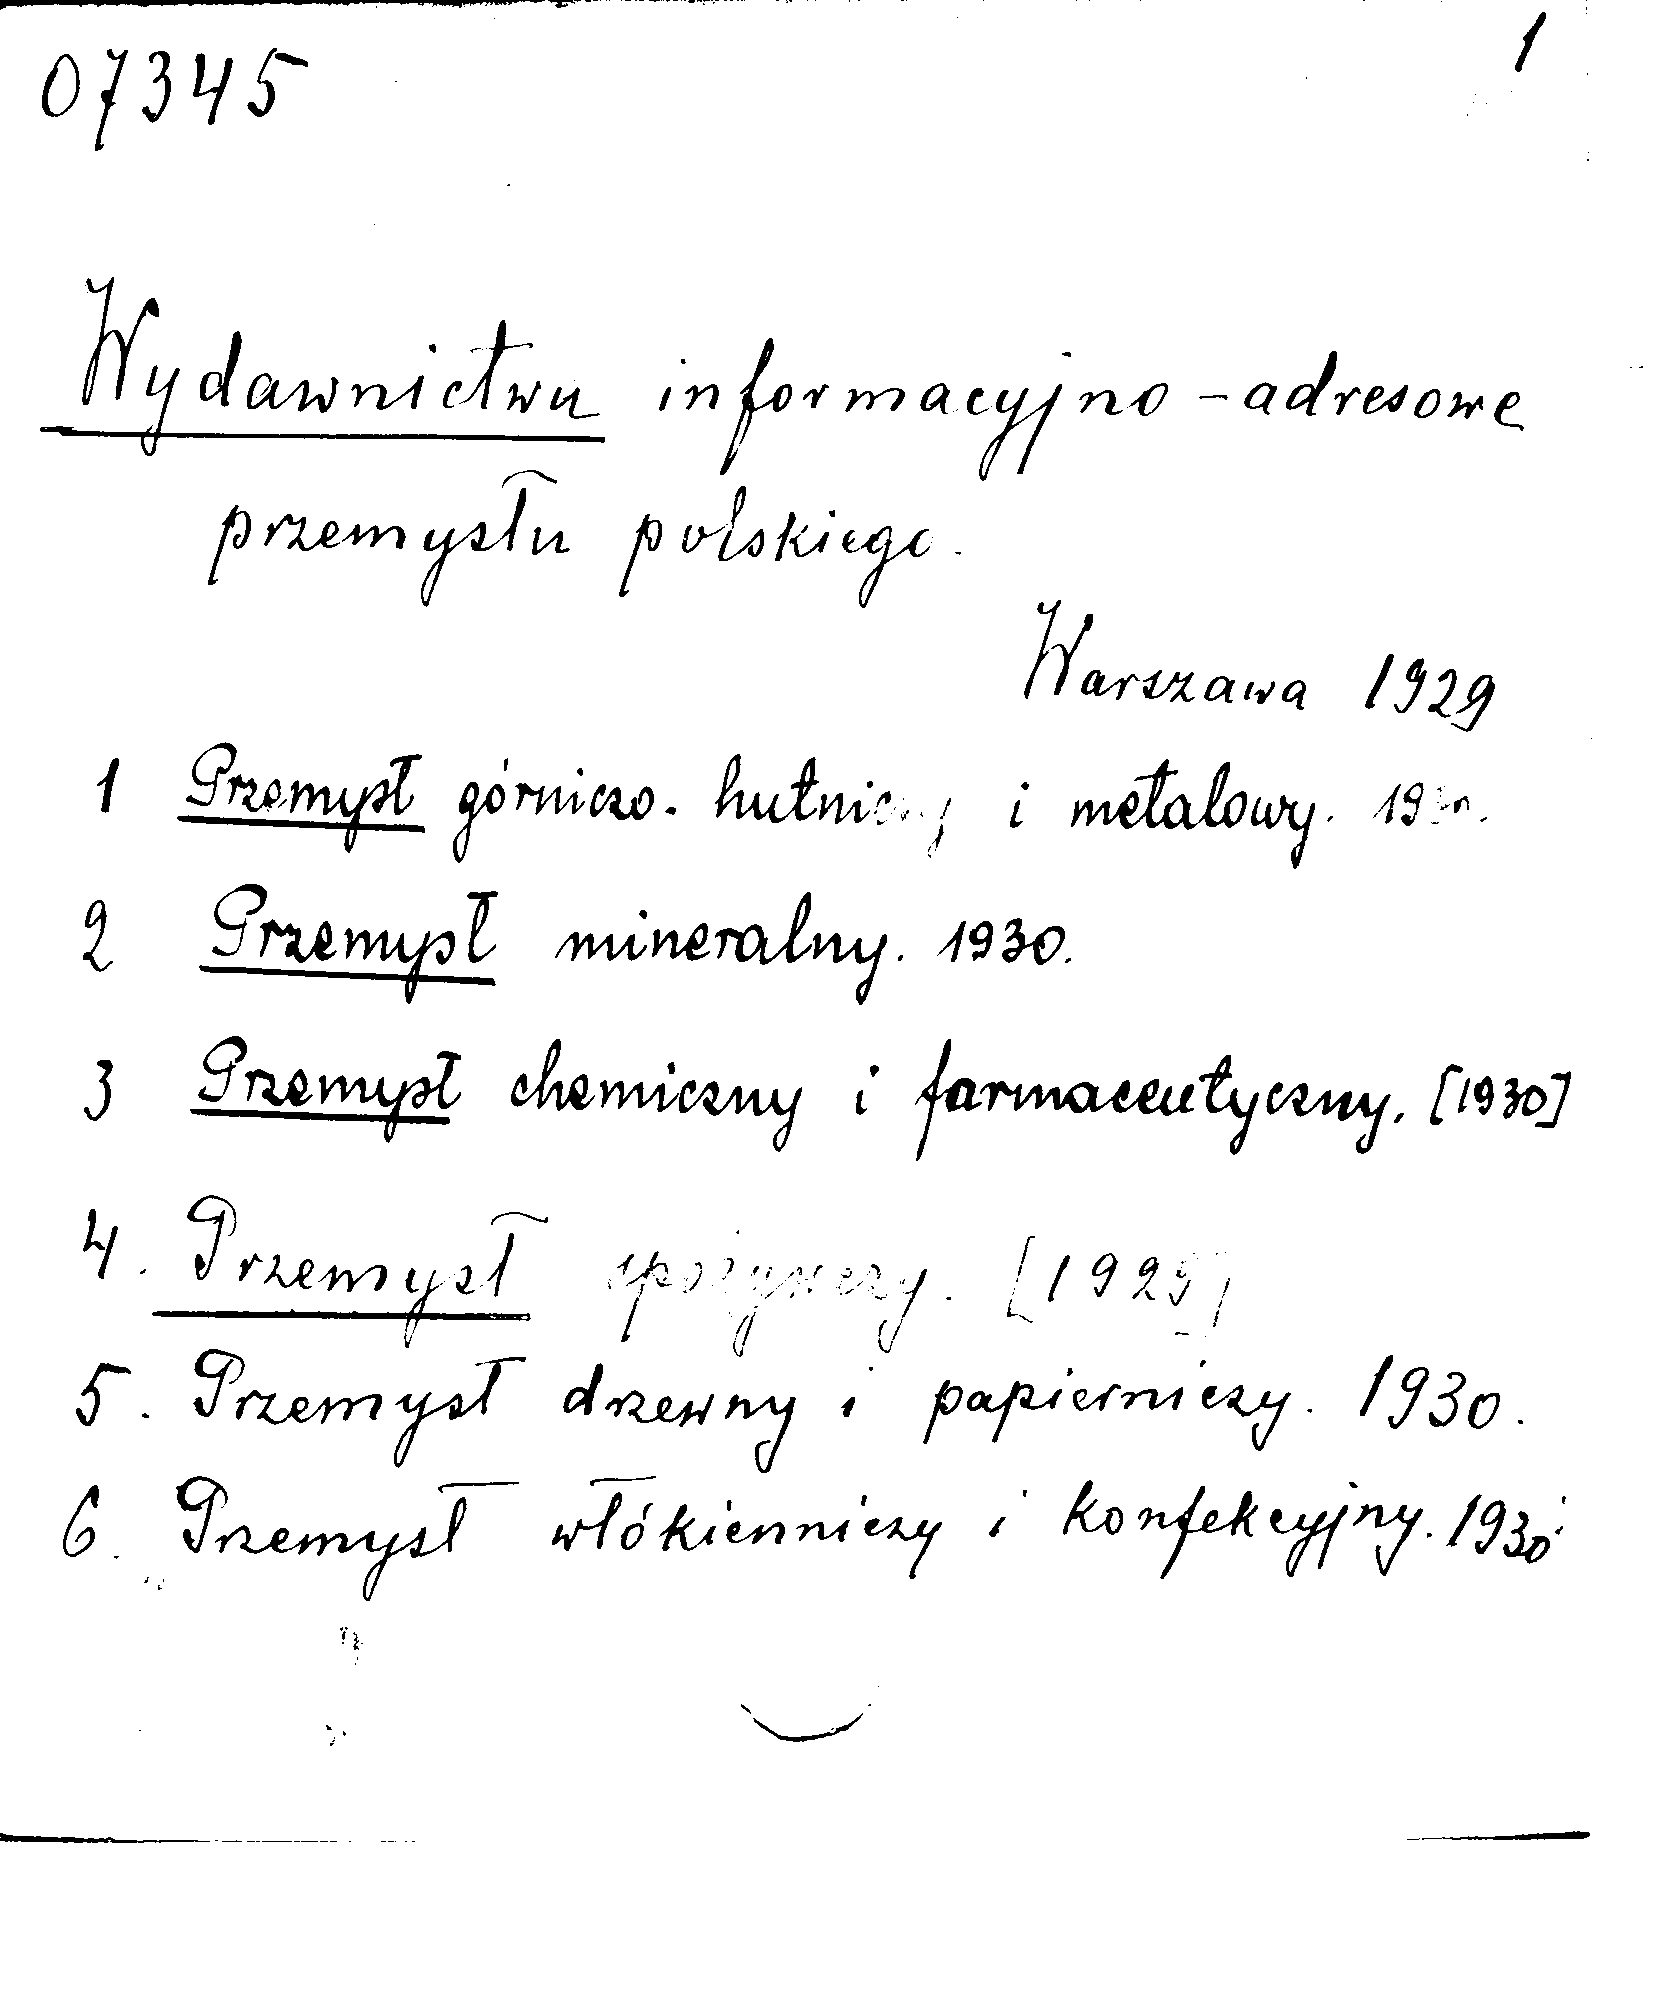 07345
1
Wydawnictwu informacyjno-adresowe
przemysłu polskiego.
Warszawa 1929
1 Przemysł górniczo-hutniczy i metalowy. 1930.
2 Przemysł mineralny. 1930.
3 Przemysł chemiczny i farmaceutyczny. [1930]
4. Przemysł spożywczy. [1929]
5. Przemysł drzewny i papierniczy. 1930.
6. Przemysł włókienniczy i konfekcyjny. 1930